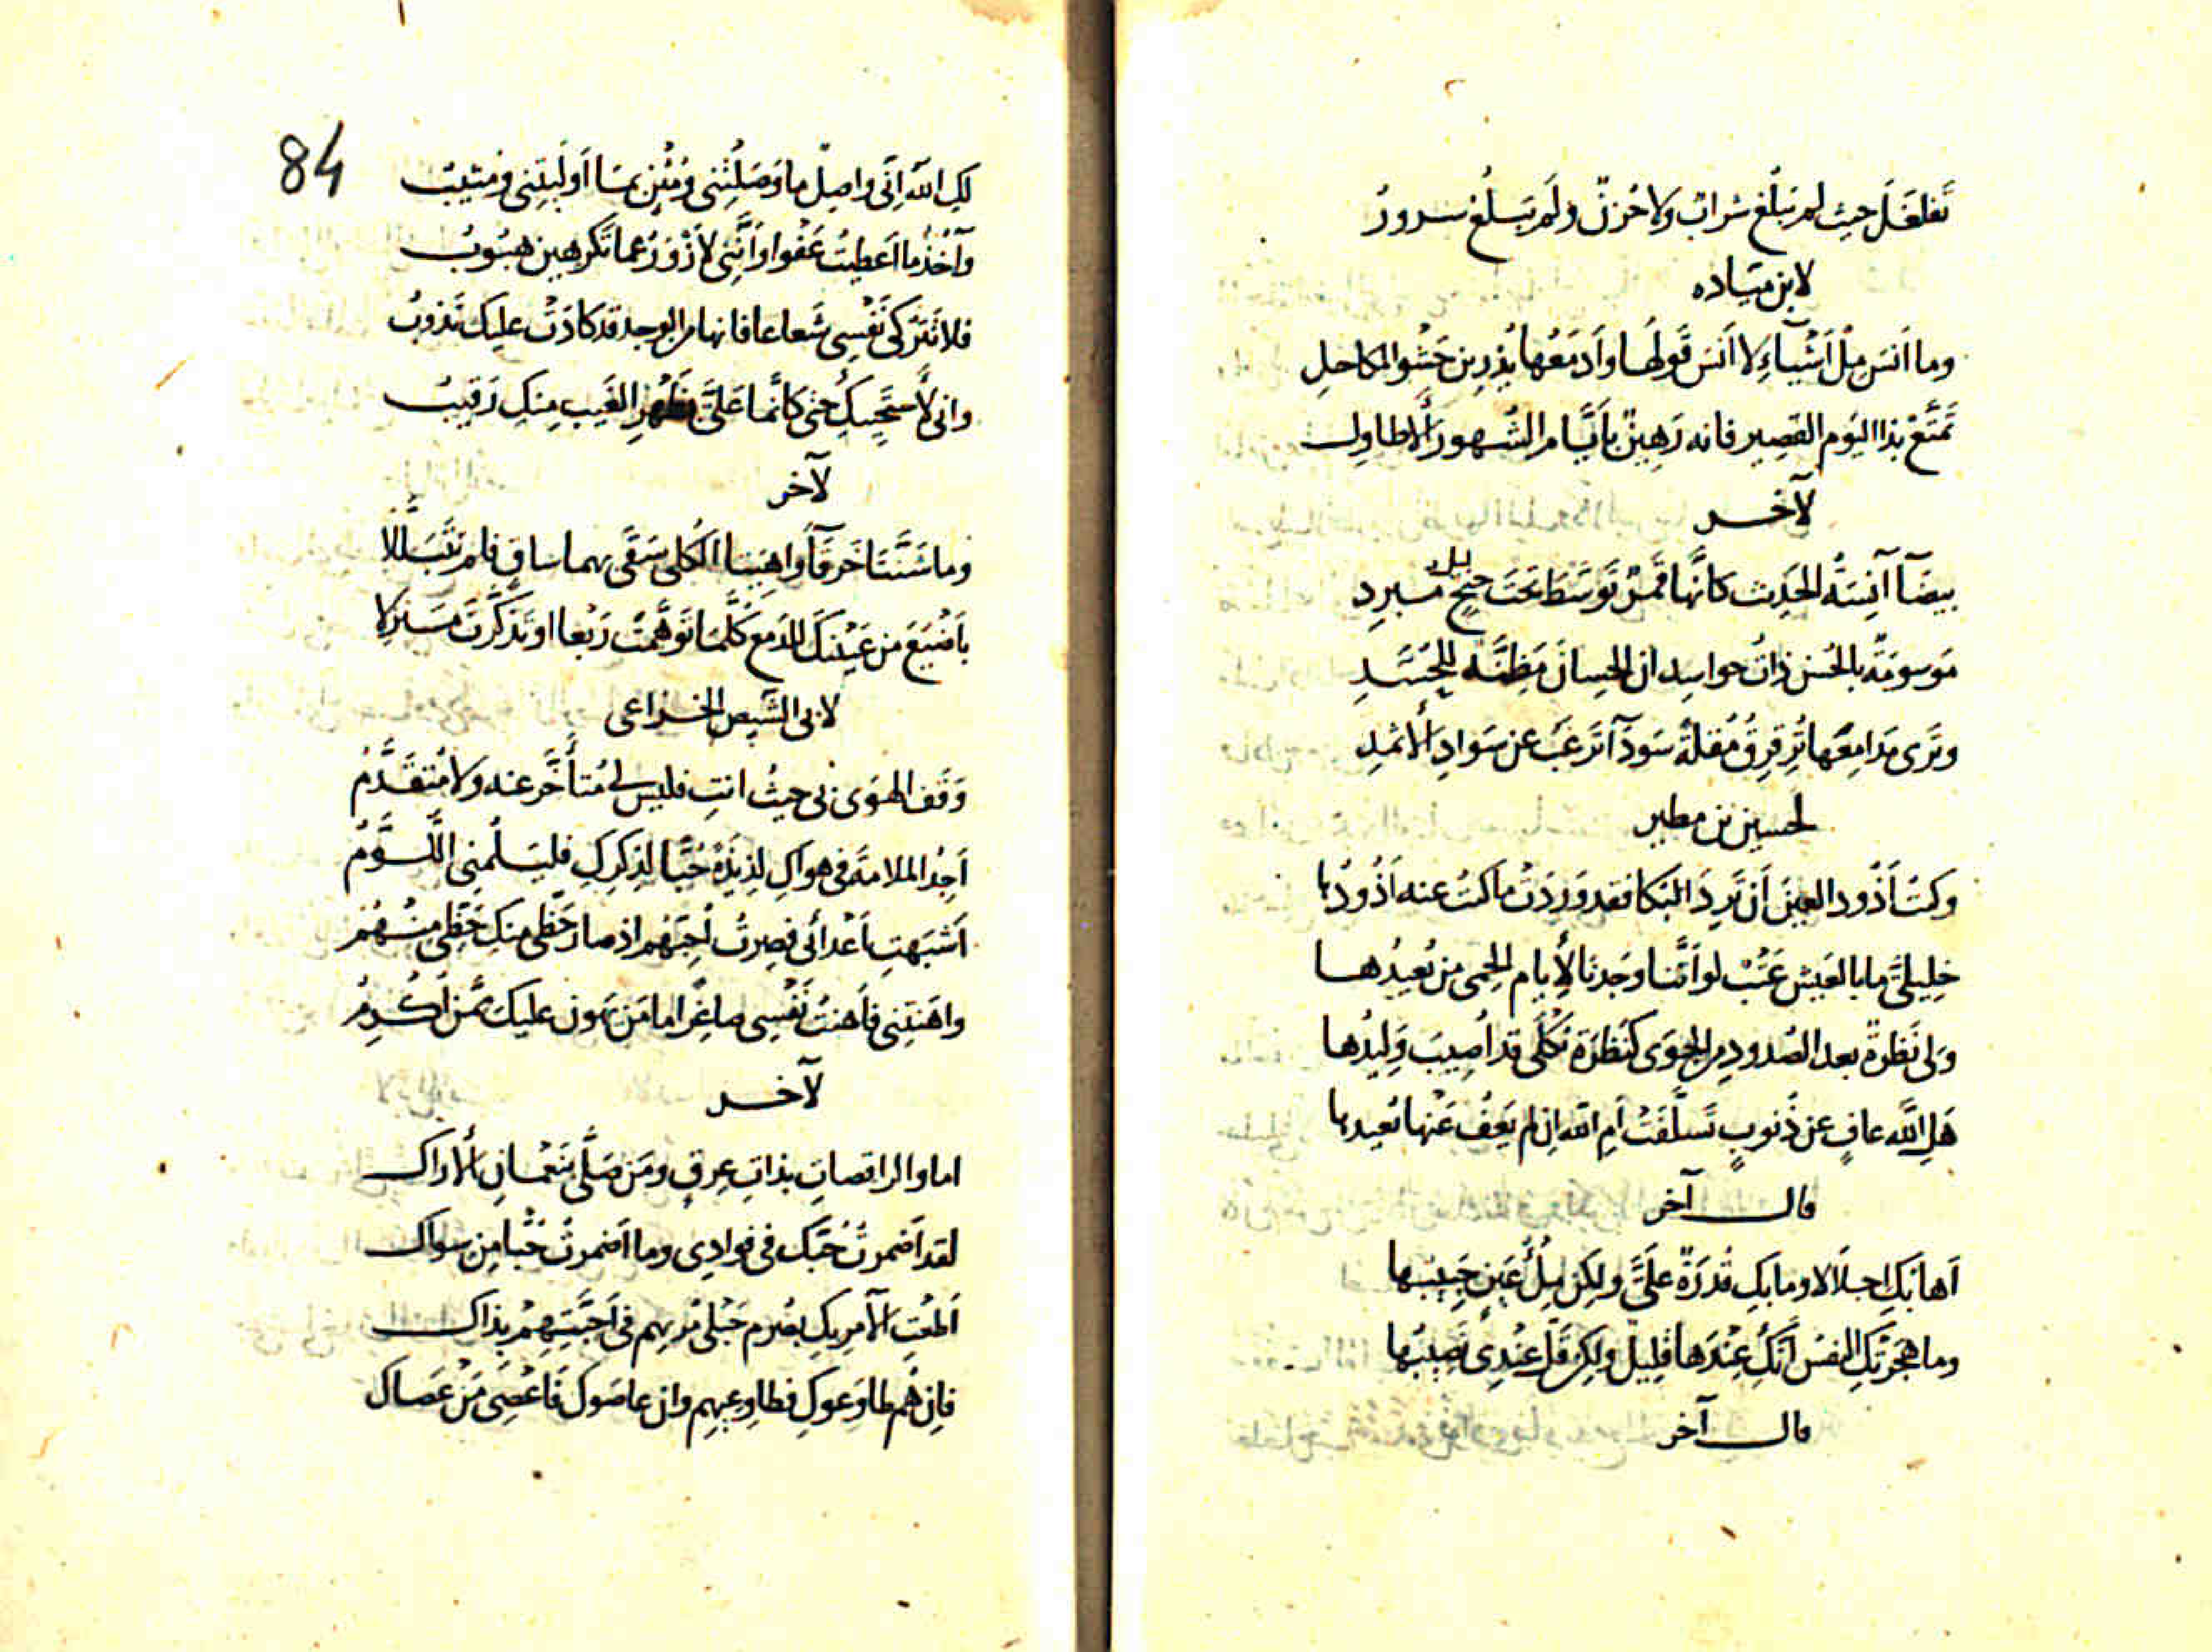 تَغَلغَلَ حيث لم يَبلُغ شرابٌ ولا حُزنٌ ولَم يَبلُغ سرورُ
لابن ميّاده
وما اَنسَ مِلْ اَشْيآءِ لا اَنسَ قَولَها وأَدمَعُها يُذرِينَ حَشْوَ المكاحلِ
تَمَتَّعْ بِذا اليَومِ القَصِيرِ فانه رَهِينٌ بأيَّامِ الشُهورِ الأطاولِ
لآخر
بيضآ آنِسَةُ الحَدِيث كانَّها قمَرٌ تَوَسَّطَ تَحتَ جِنحِ ليل مُبرِدِ
مَوسومَةٌ بالحُسنِ ذاتُ حواسِدٍ ان الحِسانَ مَظِنَّةٌ للحُسَّدِ
وتَرى مَدامِعَها تُرَقرِقُ مُقلَةً سَودَآ تَرغَبُ عن سَوادِ الأثمدِ
لحسين بن مطير
وكنتُ اَذُودُ العينَ اَن تَرِدَ البُكا فقد وَرَدَتْ ما كنتُ عنه اَذُودُها
خليليَّ ما بالعَيشِ عَتْبٌ لو اَنَّنا وَجَدنا لأيام الحِمى من يُعِيدُها
وَلى نَظرَةٌ بعد الصُدودِ مِن الجَوَى كَنَظرَةِ ثَكْلَى قد اُصِيبَ وَلِيدُها
هَلِ اللَّهُ عافٍ عن ذُنوبٍ تَسَلَّفَتْ اَمِ اللّه اِن لم يَعفُ عَنْها يُعيدها
قال آخر
اَهابُكِ اِجلاَلا وما بكِ قُدرَةٌ علَيَّ ولكِن مِلْءُ عَينٍ حَبِيبُها
وما هَجَرَتكِ النفسُ اَنَّكِ عِنْدَها قليل ولكِن قَلَّ عِنْدِى نَصِيبُها
قال آخر
84
لكِ اللّه اِنّى واصِلٌ ما وَصَلْتِنى ومُثْنٍ بمَا اَولَيتِنى ومُثيبُ
وآخُذُ ما اَعطيتِ عَفْوا واَنَّنى لأزْوَرُ عما تَكرهينَ هَيُوبُ
فلا تَترُكى نَفْسِى شَعاعا فانها من الوجد قد كادَتْ عليك تَذوبُ
وانى لأستَحييكِ حتى كاَنَّما عَلَىَّ بظَهْرِ الغَيبِ مِنكِ رَقيبُ
لآخر
وما شَنَّتَا خَرقآَ واهِيتا الكُلى سَقَى بهما ساقٍ فلم تَتَبَلَّلا
بأضْيَعَ من عَيْنَيكَ للدَمع كُلَّمَا تَوَهَّمتَ رَبْعا او تَذَكَّرتَ مَنزِلا
لابى الشيص الخزاعى
وَقَفَ الهَوَى بى حيثُ انتِ فليس لى مُتأَخَّر عنه ولا مُتقَدَّمُ
اَجِدُ الملامَةَ فى هواكِ لذيذَةً حُبًّا لذِكرِكِ فليَلُمنِى اللُّوَّمُ
اَشبَهتِ اَعْدائى فصِرتُ اُحِبُّهُم اذ صارَ حَظِّى منكِ حَظِّى مِنْهُمُ
واهَنتِنى فاَهنتُ نَفْسِى صاغِرًا ما مَن يَهون عليك مَّمن اُكْرِمُ
لآخر
اما والراقصاتِ بذاتِ عِرقٍ ومَن صَلَّى بِنَعْمانِ الأَراك
لقد اَضمرتُ حُبَّك فى فوادِى وما اَضمرتُ حُبًّا مِن سواك
اَطَعتِ الآمِرِيكِ بصَرم حَبْلى مُرِيهِم فى اَحِبَّتِهِمْ بذاك
فاِن هُم طاوَعوكِ فطاوِعيهِم وان عاصَوك فَاعْصِى مَنْ عَصَاك